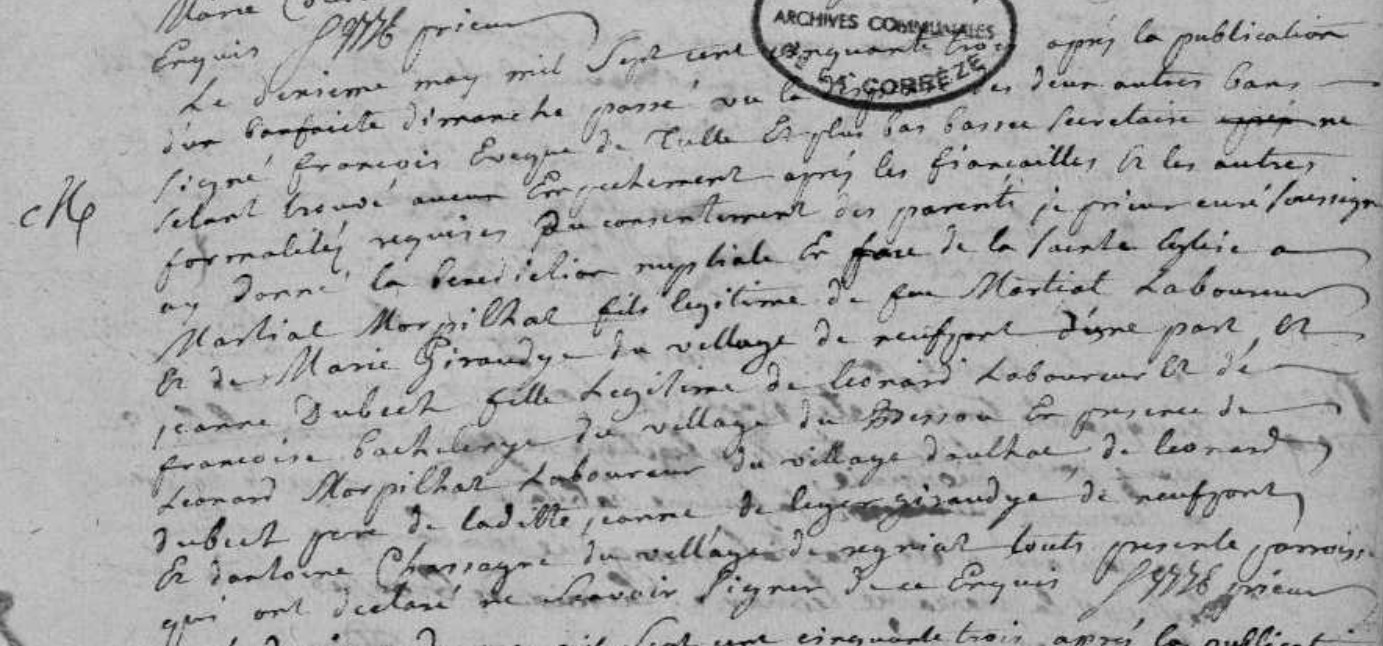 Marie
Enquis prieur
ARCHIVES COMMUNALES
CORRÈZE
Le dixieme may mil Sept cent cinquante trois aprés la publication
d'un ban faicte dimanche passé vu la des deux autres bans
signé francois Eveque de Tulle Et plus bas basset Secretaire aprés ne
setant trouvé aucun Empechement aprés les fiancailles Et les autres
formalités requises Du consentement des parents je prieur curé soussigne
ay donné la benediction nuptiale En face de la sainte Eglise a
Martial Morpilhat fils legitime de feu Martial Laboureur
Et de Marie Giraudye du village de neufpont d'une part, Et
jeanne Dubech fille Legitime de leonard Laboureur Et de
francoise bachelerye du village du En presence de
Leonard Morpilhat Laboureur du village daulhac de leonard
dubech pere de laditte jeanne de leger giraudye de neufpont
Et dantoine Chassagne du village de regniat touts presente parroisse
qui ont declaré ne Scavoir Signer de ce Enquis prieur
Sept cent cinquante trois aprés la publicati